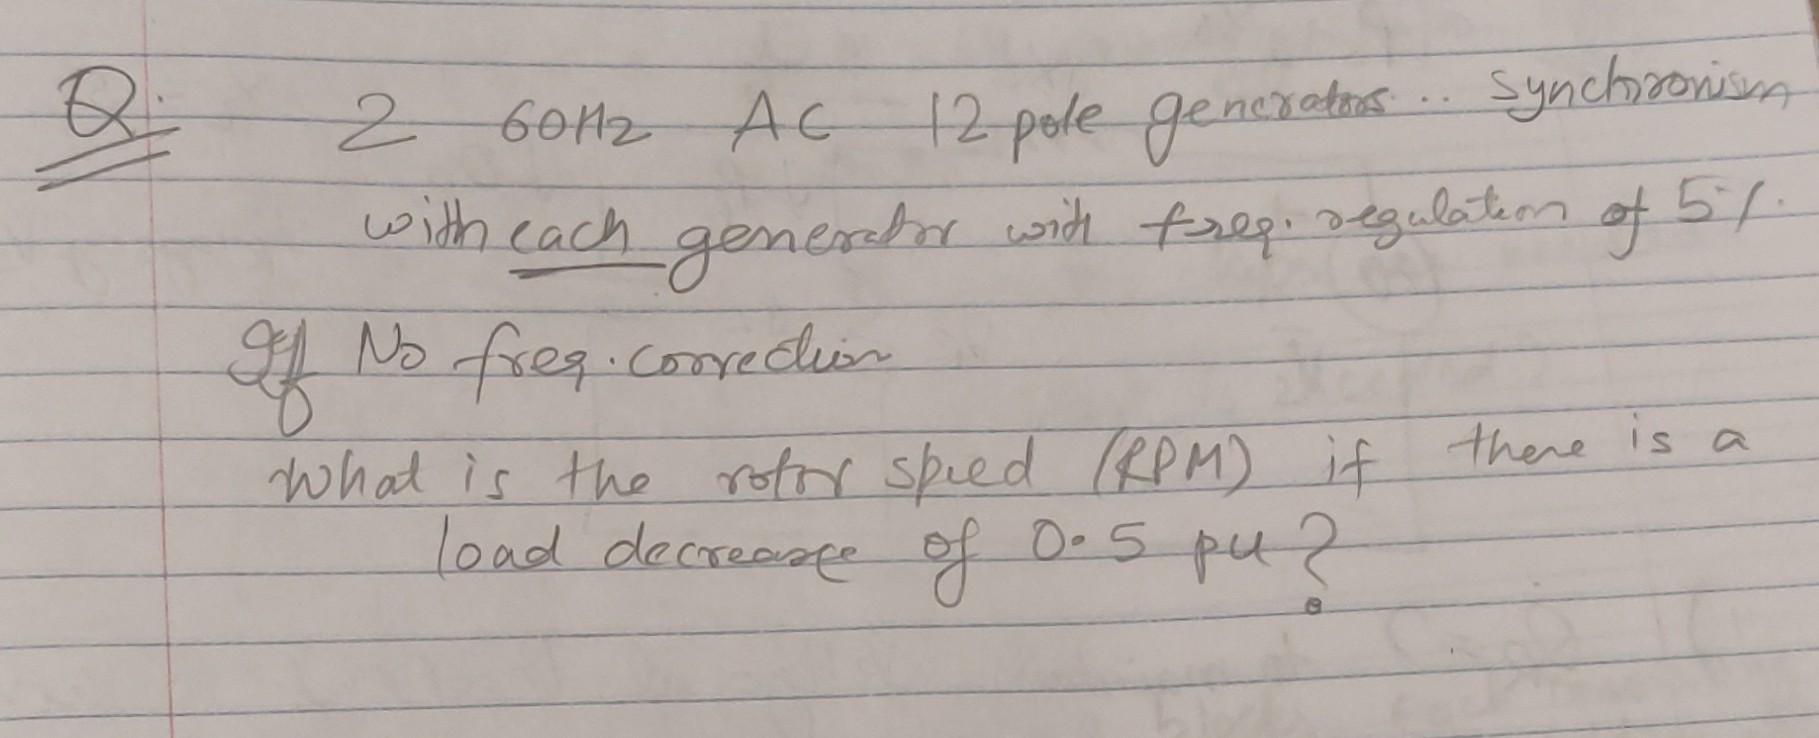 Q. 2 60Hz AC 12 pole generators .. synchronism
with each generator with freq. regulation of 5%.
If No freq. correction
What is the rotor speed (RPM) if there is a
load decrease of 0.5 pu?